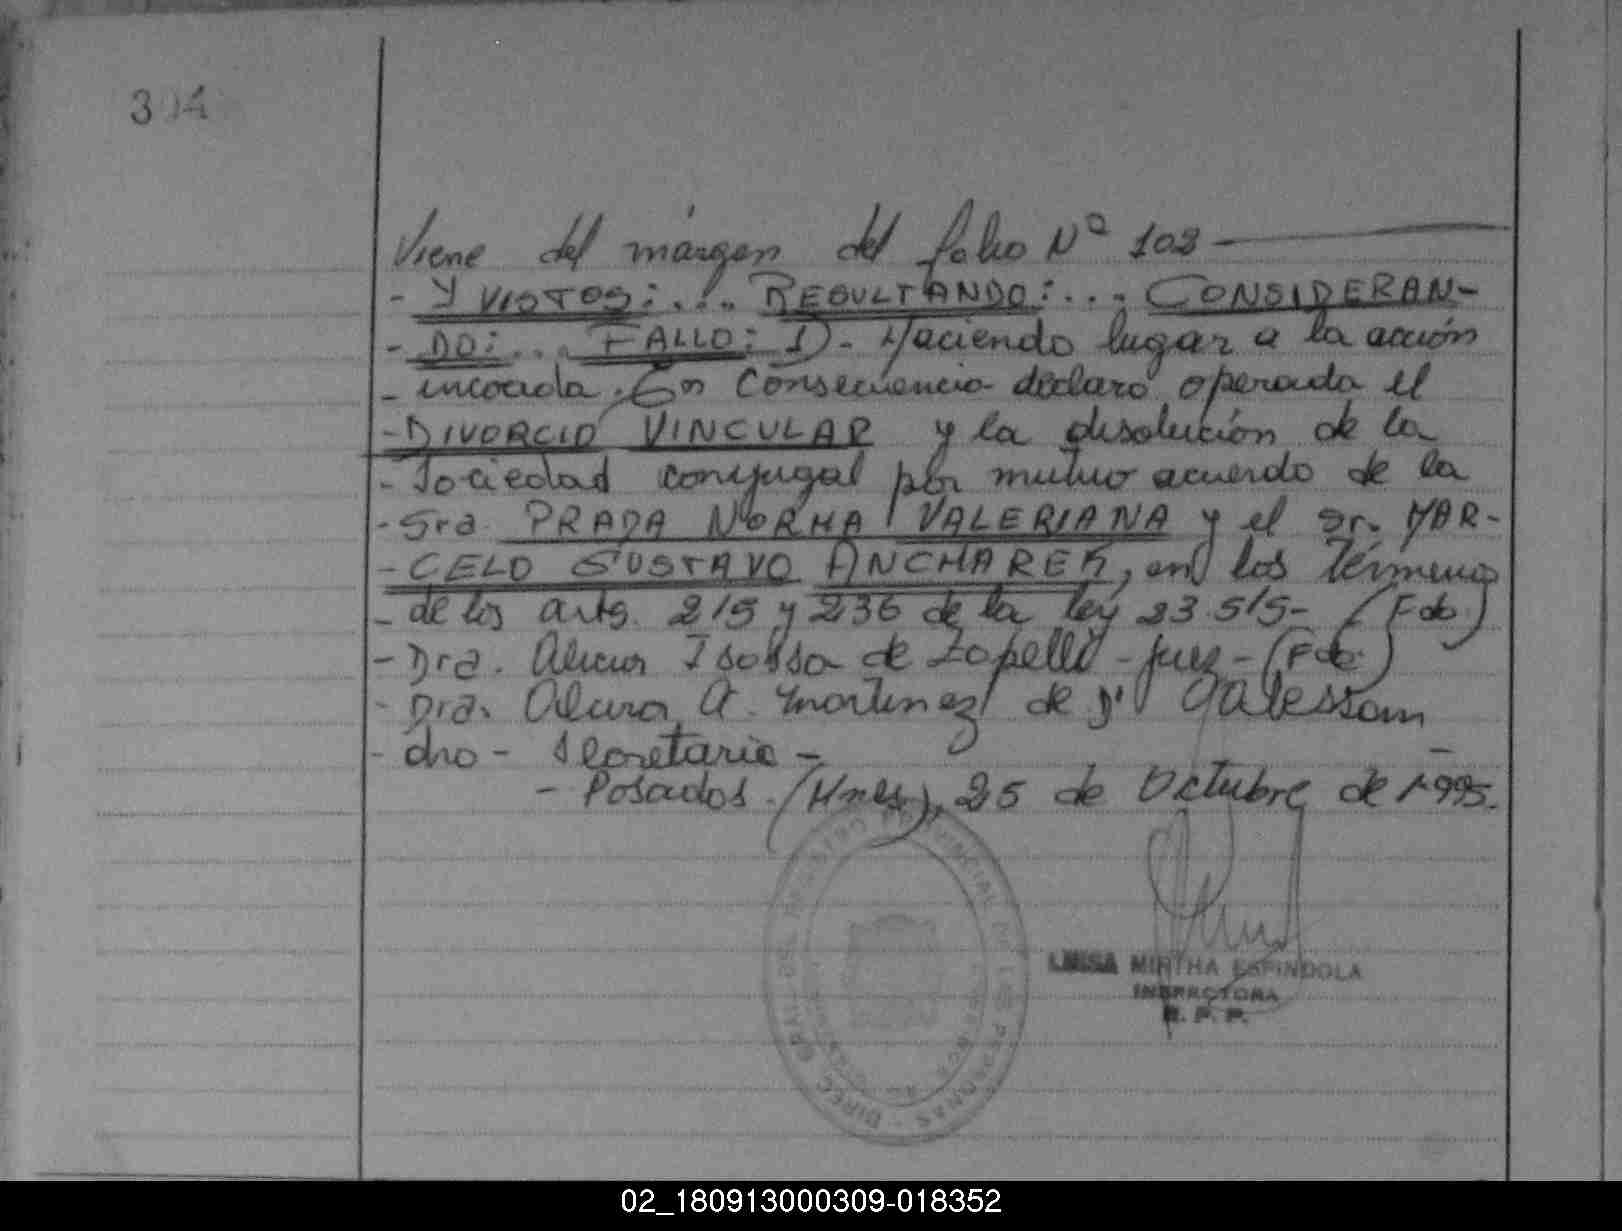 304
Viene del márgen del folio Nº 102
- Y VISTOS:... RESULTANDO:... CONSIDERAN-
- DO:... FALLO: I)- Haciendo lugar a la acción
- incoada. En Consecuencia declaro operada el
- DIVORCIO VINCULAR y la disolución de la
- Sociedad conyugal por mutuo acuerdo de la
- Sra. PRADA NORMA VALERIANA y el Sr. MAR-
- CELO GUSTAVO ANCHAREK, en los términos
- de los arts. 215 y 236 de la ley 23.515- (Fdo.)
- Dra. Alicia de Zapelli - Juez - (Fdo.)
- Dra. A. Martinez de D'Alessan
- dro - Secretaria -
- Posadas. (Mnes), 25 de Octubre de 1.995.
LUISA MIRTHA ESPINDOLA
INSPECTORA
R. P. P.
DIREC. GRAL. DEL REGISTRO PROVINCIAL DE LAS PERSONAS
02_180913000309-018352